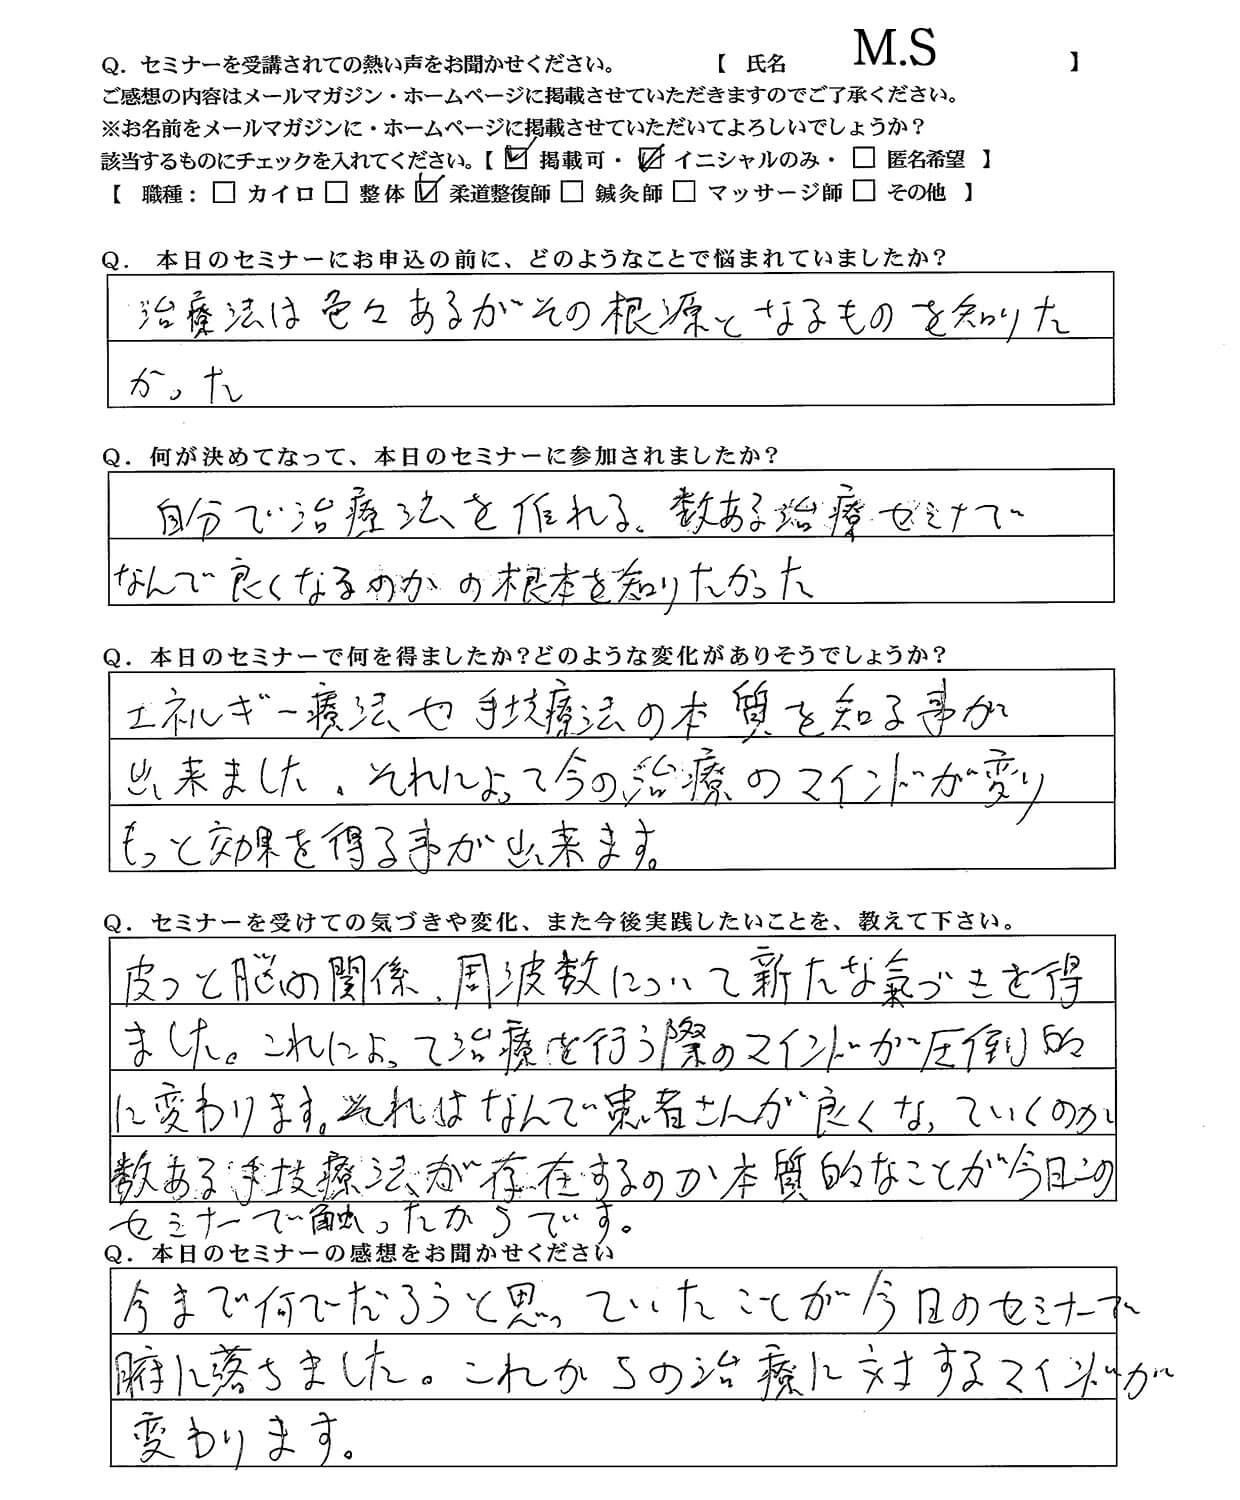 Q. セミナーを受講されての熱い声をお聞かせください。 【 氏名 M.S 】
ご感想の内容はメールマガジン・ホームページに掲載させていただきますのでご了承ください。
※お名前をメールマガジンに・ホームページに掲載させていただいてよろしいでしょうか？
該当するものにチェックを入れてください。【 ☑ 掲載可・ ☑ イニシャルのみ・ □ 匿名希望 】
【 職種： □ カイロ □ 整体 ☑ 柔道整復師 □ 鍼灸師 □ マッサージ師 □ その他 】
Q. 本日のセミナーにお申込の前に、どのようなことで悩まれていましたか？
治療法は色々あるがその根源となるものを知りた
かった
Q. 何が決めてなって、本日のセミナーに参加されましたか？
自分で治療法を作れる、数ある治療セミナで
なんで良くなるのかの根本を知りたかった
Q. 本日のセミナーで何を得ましたか？どのような変化がありそうでしょうか？
エネルギー療法や手技療法の本質を知る事が
出来ました。それによって今の治療のマインドが変り
もっと効果を得る事が出来ます。
Q. セミナーを受けての気づきや変化、また今後実践したいことを、教えて下さい。
皮フと脳の関係、周波数について新たな氣づきを得
ました。これによって治療を行う際のマインドが圧倒的
に変わります。それはなんで患者さんが良くなっていくのか
数ある手技療法が存在するのか本質的なことが今日この
セミナーで触ったからです。
Q. 本日のセミナーの感想をお聞かせください
今まで何でだろうと思っていたことが今日のセミナーで
腑に落ちました。これからの治療に対するマインドが
変わります。